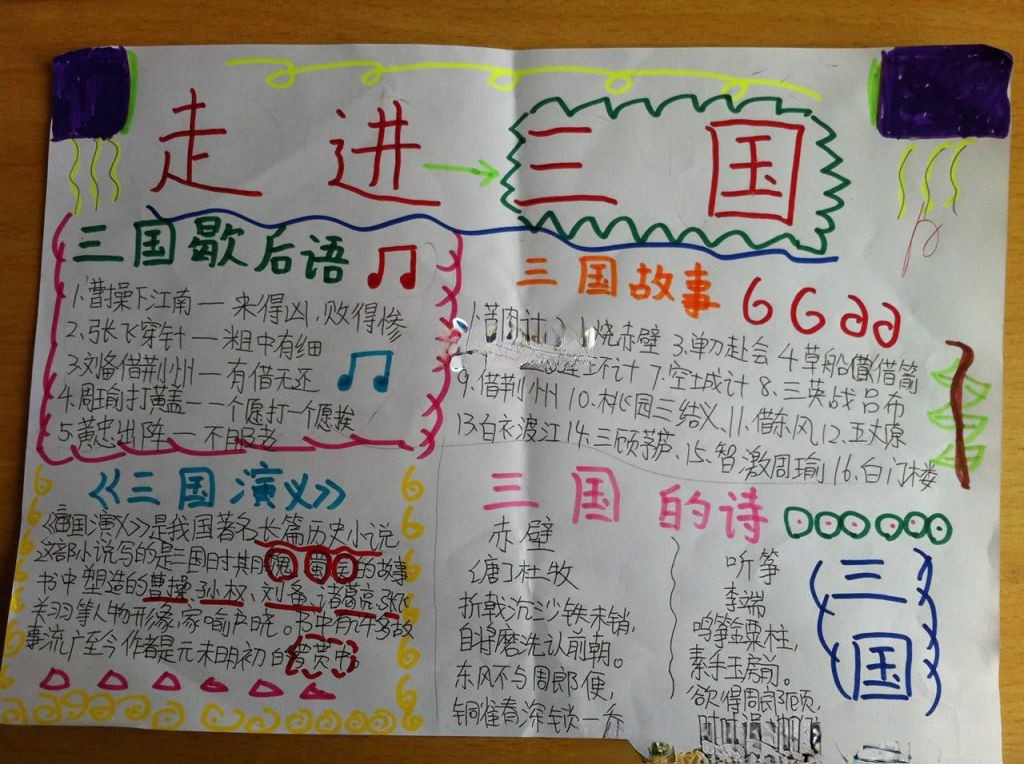 走进三国
三国歇后语
1.曹操下江南—来得凶,败得惨
2.张飞穿针—粗中有细
3.刘备借荆州—有借无还
4.周瑜打黄盖—一个愿打一个愿挨
5.黄忠出阵—不服老
三国故事
1.苦肉计 2. 烧赤壁 3.单刀赴会 4.草船借箭
连环计 7.空城计 8.三英战吕布
9.借荆州 10.桃园三结义、11.借东风 12.五丈原
13白衣渡江 14.三顾茅庐、15.智激周瑜 16.白门楼
《三国演义》
演国演义》》是我国著名长篇历史小说
这部小说写的是三国时期 魏 蜀 的故事
书中塑造的曹操、孙权、刘备、诸葛亮、
关羽等人物形象家喻户晓。书中有许多故
事流广至今作者是元末明初的罗贯中
三国的诗
赤壁
(唐)杜牧
折戟沉沙铁未销,
自将磨洗认前朝。
东风不与周郎便,
铜雀春深锁二乔
听筝
李端
鸣筝金粟柱,
素手玉房前。
欲得周郎顾,
时时误拂
三国